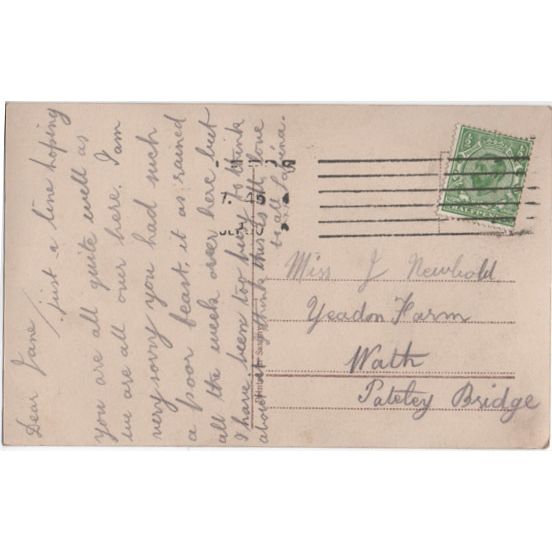 Dear Jane
just a line hoping
you are all quite well as
we are all our here. I am
very sorry you had such
a poor feast. it as rained
all the week over here but
I have been too busy to think
about it I think this is all love
to all Lavina.
Miss J Newbold
Yeadon Farm
Wath
Pateley Bridge